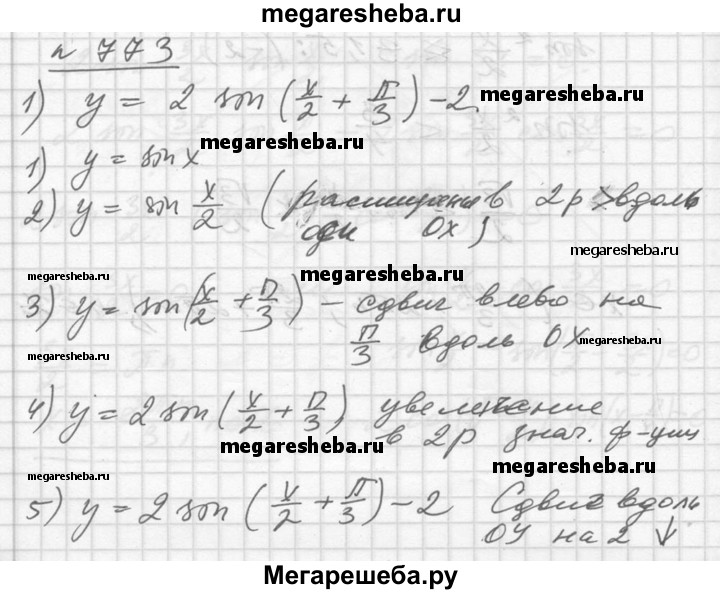 megaresheba.ru
n 773
1) y = 2 sin (x/2 + π/3) - 2 megaresheba.ru
megaresheba.ru
1) y = sin x
2) y = sin x/2 (расширение в 2р вдоль
оси Ox)
megaresheba.ru
megaresheba.ru megaresheba.ru
3) y = sin (x/2 + π/3) - сдвиг влево на
π/3 вдоль OX
megaresheba.ru megaresheba.ru
4) y = 2 sin (x/2 + π/3) увеличение
в 2р знач. ф-ции
megaresheba.ru
megaresheba.ru megaresheba.ru
5) y = 2 sin (x/2 + π/3) - 2 Сдвиг вдоль
ОУ на 2 ↓
Мегарешеба.ру